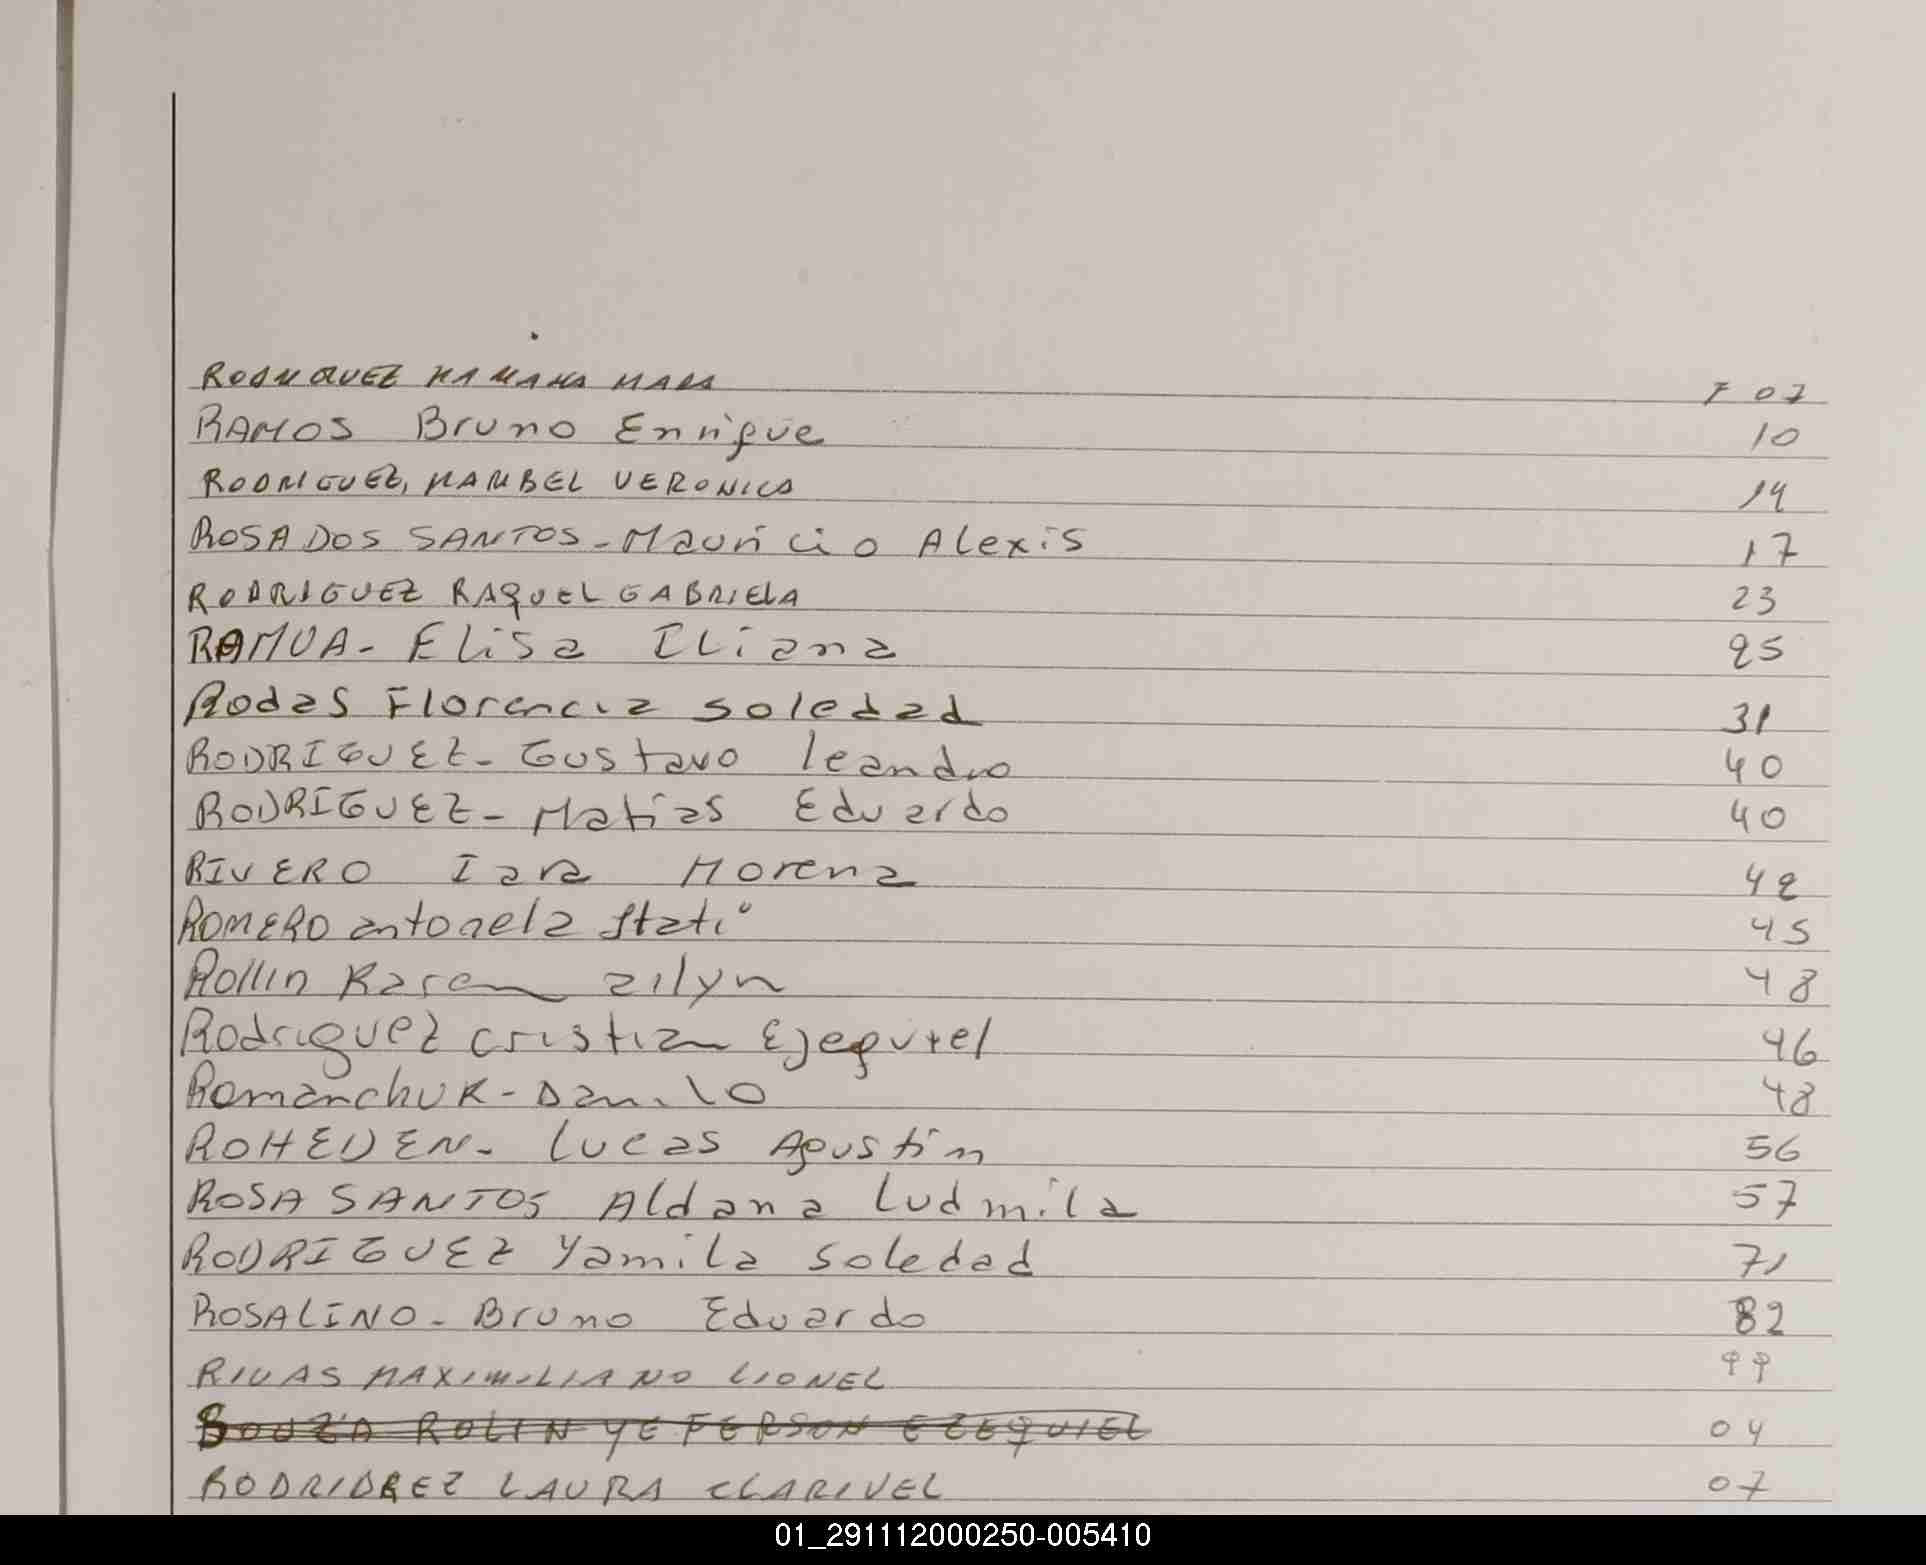 RODRIGUEZ MAMANI MARA F 07
RAMOS Bruno Enrique 10
RODRIGUEZ, MARIBEL VERONICA 14
ROSA DOS SANTOS - Mauricio Alexis 17
RODRIGUEZ RAQUEL GABRIELA 23
RAMUA - Elisa Eliana 25
Rodas Florencia Soledad 31
RODRIGUEZ - Gustavo leandro 40
RODRIGUEZ - Matias Eduardo 40
RIVERO Iara Morena 42
ROMERO antonela 45
Rollin Karen 48
Rodriguez cristian Ejequiel 46
Romanchuk - Danilo 48
ROHEDEN - Lucas Agustin 56
ROSA SANTOS Aldana Ludmila 57
RODRIGUEZ Yamila Soledad 71
ROSALINO - Bruno Eduardo 82
RIVAS MAXIMILIANO LIONEL 99
SOUZA ROLIN YEFERSON EZEQUIEL 04
LAURA CLARIVEL 07
01_291112000250-005410